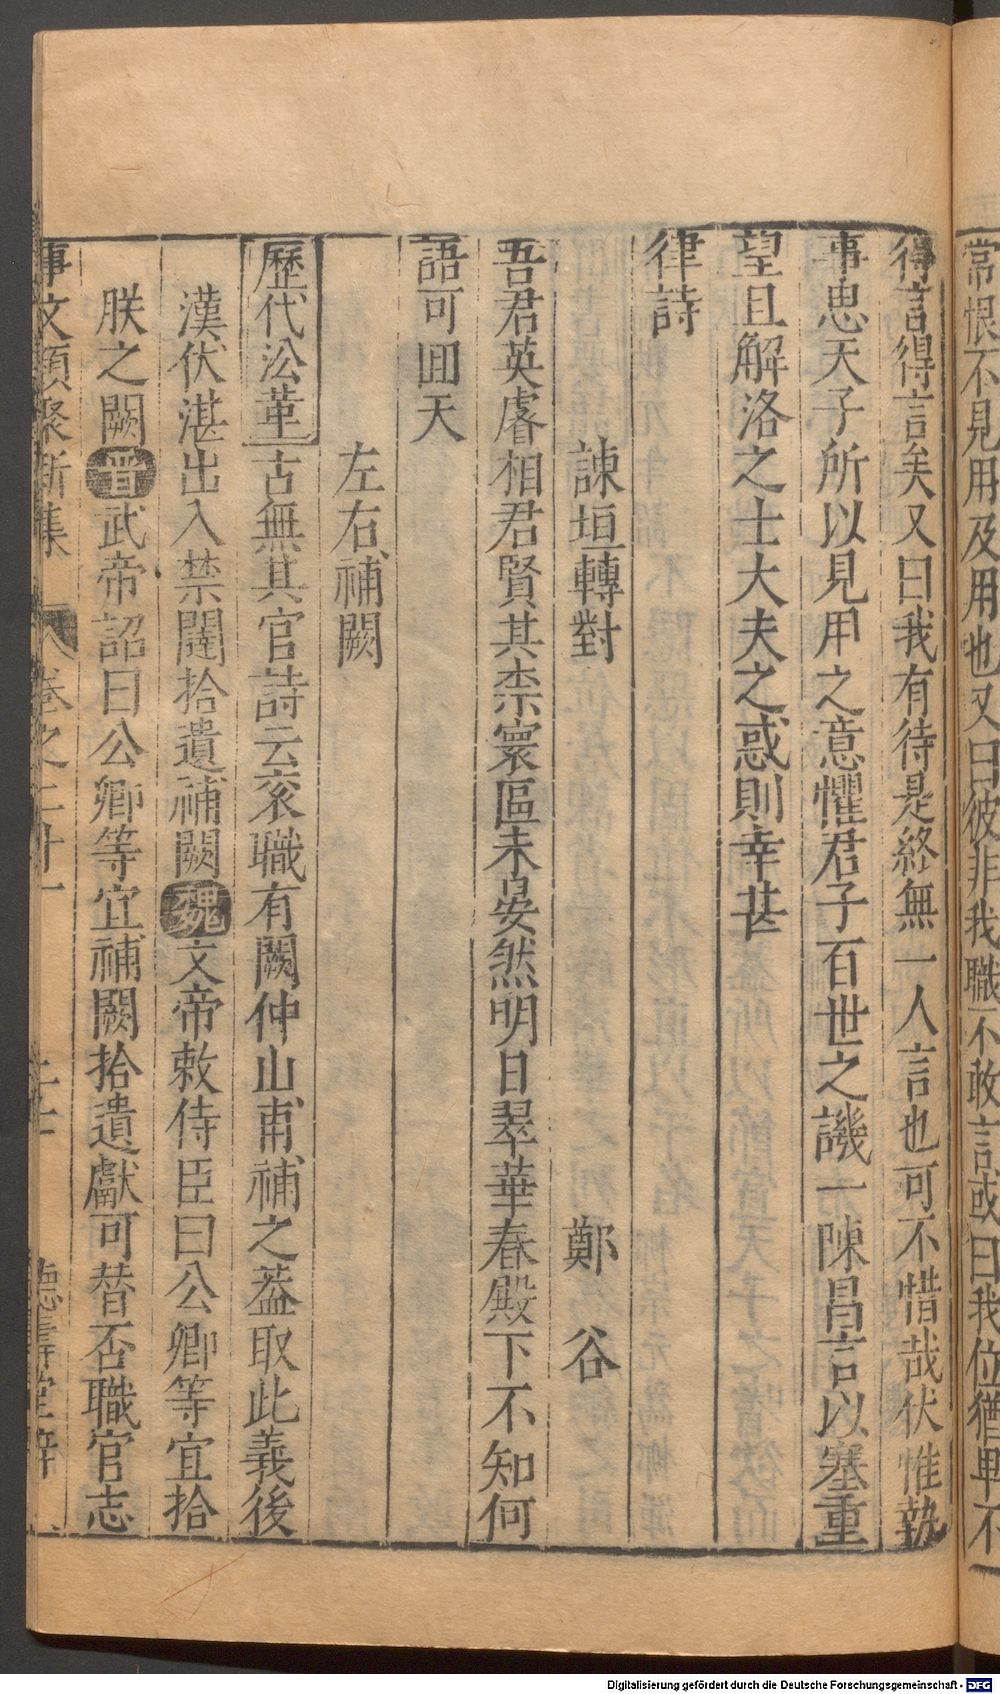 常恨不見用及用也又曰彼非我職不敢言或曰我位猶卑不
得言得言矣又曰我有待是終無一人言也可不惜哉伏惟執
事思天子所以見用之意懼君子百世之譏一陳昌言以塞重
望且解洛之士大夫之惑則幸甚
律詩
諫垣轉對 鄭谷
吾君英睿相君賢其柰寰區未晏然明日翠華春殿下不知何
語可囬天
左右補闕
歷代㳂革 古無其官詩云衮職有闕仲山甫補之蓋取此義後
漢伏湛出入禁闥拾遺補闕魏文帝敕侍臣曰公卿等宜拾
朕之闕晋武帝詔曰公卿等宜補闕拾遺獻可替否職官志
事文類聚新集 卷之二十一 德壽堂梓
Digitalisierung gefördert durch die Deutsche Forschungsgemeinschaft - DFG